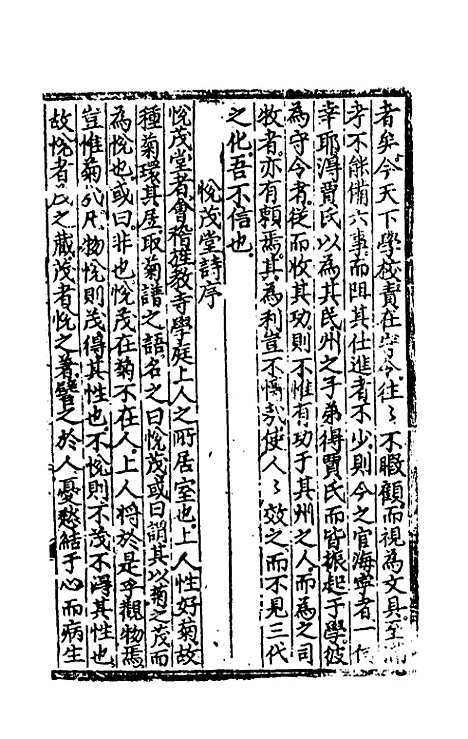 者矣今天下學校責在守令往〻不暇顧而視為文具至
考不能備六事而阻其仕進者不少則今之官海寧者一何
幸耶得賈氏以為其民州之子弟得賈氏而皆振起于學彼
為守令者從而收其功則不惟有功于其州之人而為之司
牧者亦有賴焉其為利豈不博哉使人〻效之而不見三代
之化吾不信也
悅茂堂詩序
悅茂堂者會稽淮教寺學庭上人之所居室也上人性好菊故
種菊環其居取菊譜之語名之曰悅茂或曰謂其以菊之茂而
為悅也或曰非也悅茂在菊不在人上人將於是乎觀物焉
豈惟菊哉凡物悅則茂得其性也不悅則不茂不得其性也
故悅者茂之藏茂者悅之著譬之於人憂愁結于心而病生